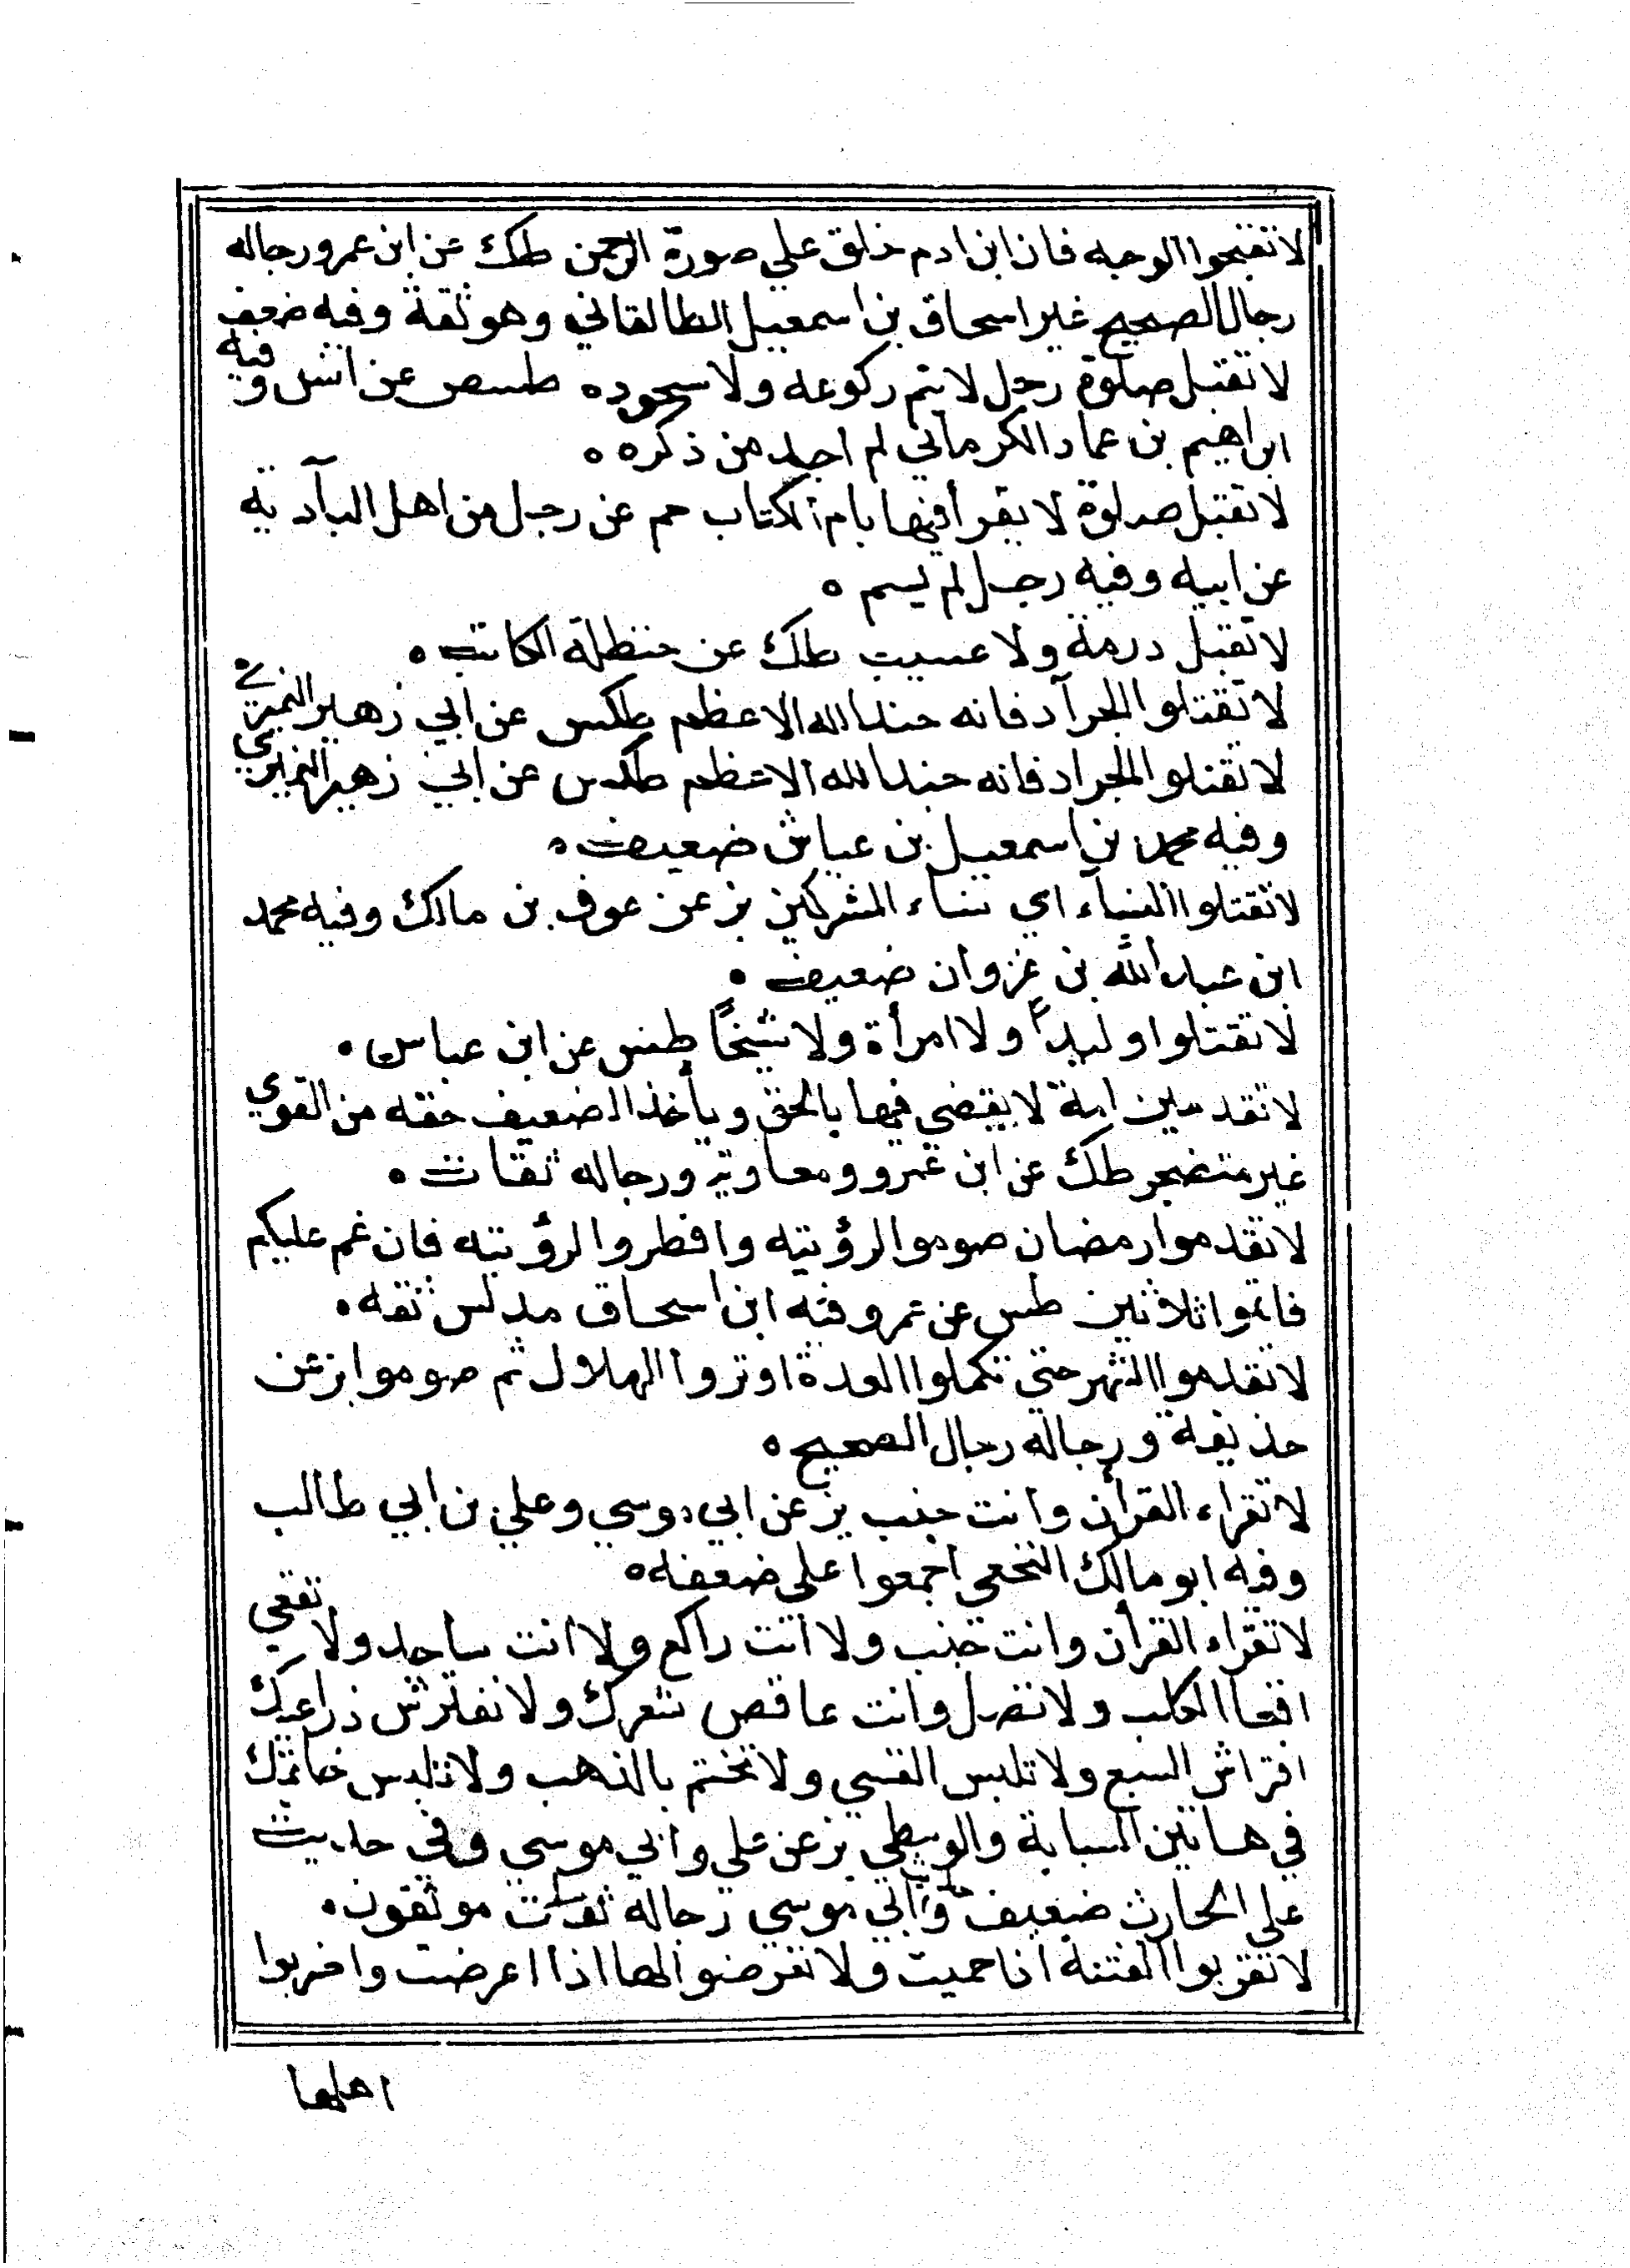 لا تقبحوا الوجه فان ابن ادم خلق علي صورة الرحمن طك عن ابن عمر ورجاله
رجال الصحيح غير اسحاق بن اسمعيل الطالقاني وهو ثقة وفيه ضعف
لا تقبل صلوة رجل لا يتم ركوعه ولا سجوده طسص عن انس وفيه
ابراهيم بن عماد الكرماني لم اجد من ذكره ه
لا تقبل صلوة لا يقرأ فيها بام الكتاب حم عن رجل من اهل البآدية
عن ابيه وفيه رجل لم يسم ه
لا تقبل درمة ولا عسيب طك عن حنظلة الكاتب ه
لا تقتلوا الجرآد فانه جند الله الاعظم طكس عن ابي زهير النميري
لا تقتلوا الجراد فانه جند الله الاعظم طكس عن ابي زهير النميري
وفيه محمد بن اسمعيل بن عياش ضعيف ه
لا تقتلوا النساء اي نساء المشركين بز عن عوف بن مالك وفيه محمد
ابن عبد الله بن غزوان ضعيف ه
لا تقتلوا وليداً ولا امرأة ولا شيخاً طس عن ابن عباس ه
لا تقدس امة لا يقضي فيها بالحق ويأخذ الضعيف حقه من القوي
غير متضجر طك عن ابن عمرو ومعاوية ورجاله ثقات ه
لا تقدموا رمضان صوموا لرؤيته وافطروا لرؤيته فان غم عليكم
فاتموا ثلاثين طس عن عمر وفيه ابن اسحاق مدلس ثقه ه
لا تقدموا الشهر حتي تكملوا العدة او تروا الهلال ثم صوموا بز عن
حذيفة ورجاله رجال الصحيح ه
لا تقراء القرأن وانت جنب بز عن ابي موسي وعلي بن ابي طالب
وفيه ابو مالك النخعي اجمعوا على ضعفه ه
لا تقراء القرأن وانت جنب ولا انت راكع ولا انت ساجد ولا تقعي
اقعا الكلب ولا تصل وانت عاقص شعرك ولا تفترش ذراعيك
افتراش السبع ولا تلبس القسي ولا تختم بالذهب ولا تلبس خاتمك
في هاتين السبابة والوسطي بز عن علي وابي موسي وفي حديث
على الحارث ضعيف وحديث ابي موسي رجاله ثقات موثقون ه
لا تقربوا الفتنة اذا حميت ولا تعرضوا لها اذا اعرضت واضربوا
اهلها